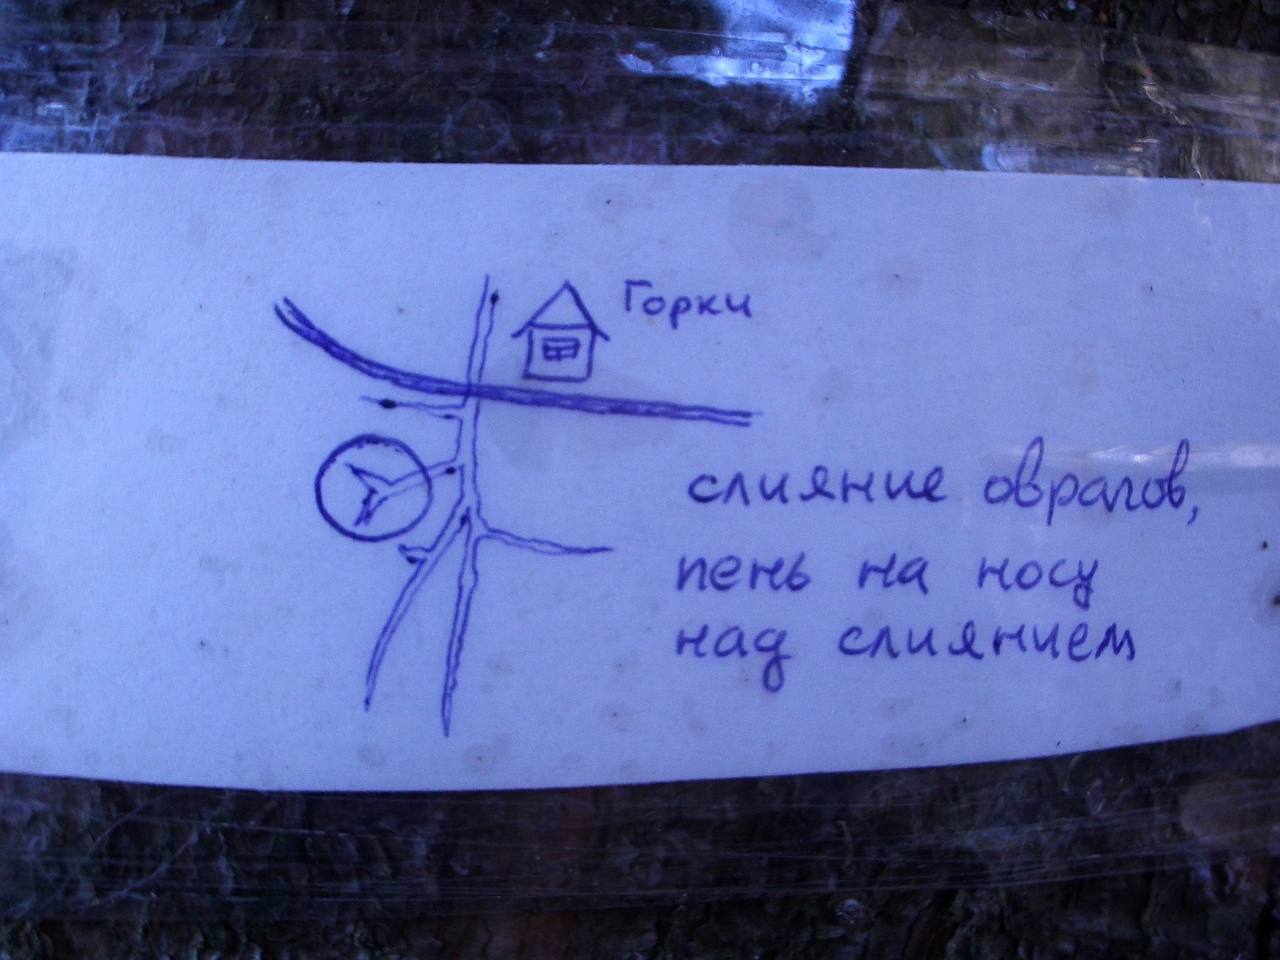 Горки
слияние оврагов,
пень на носу
над слиянием